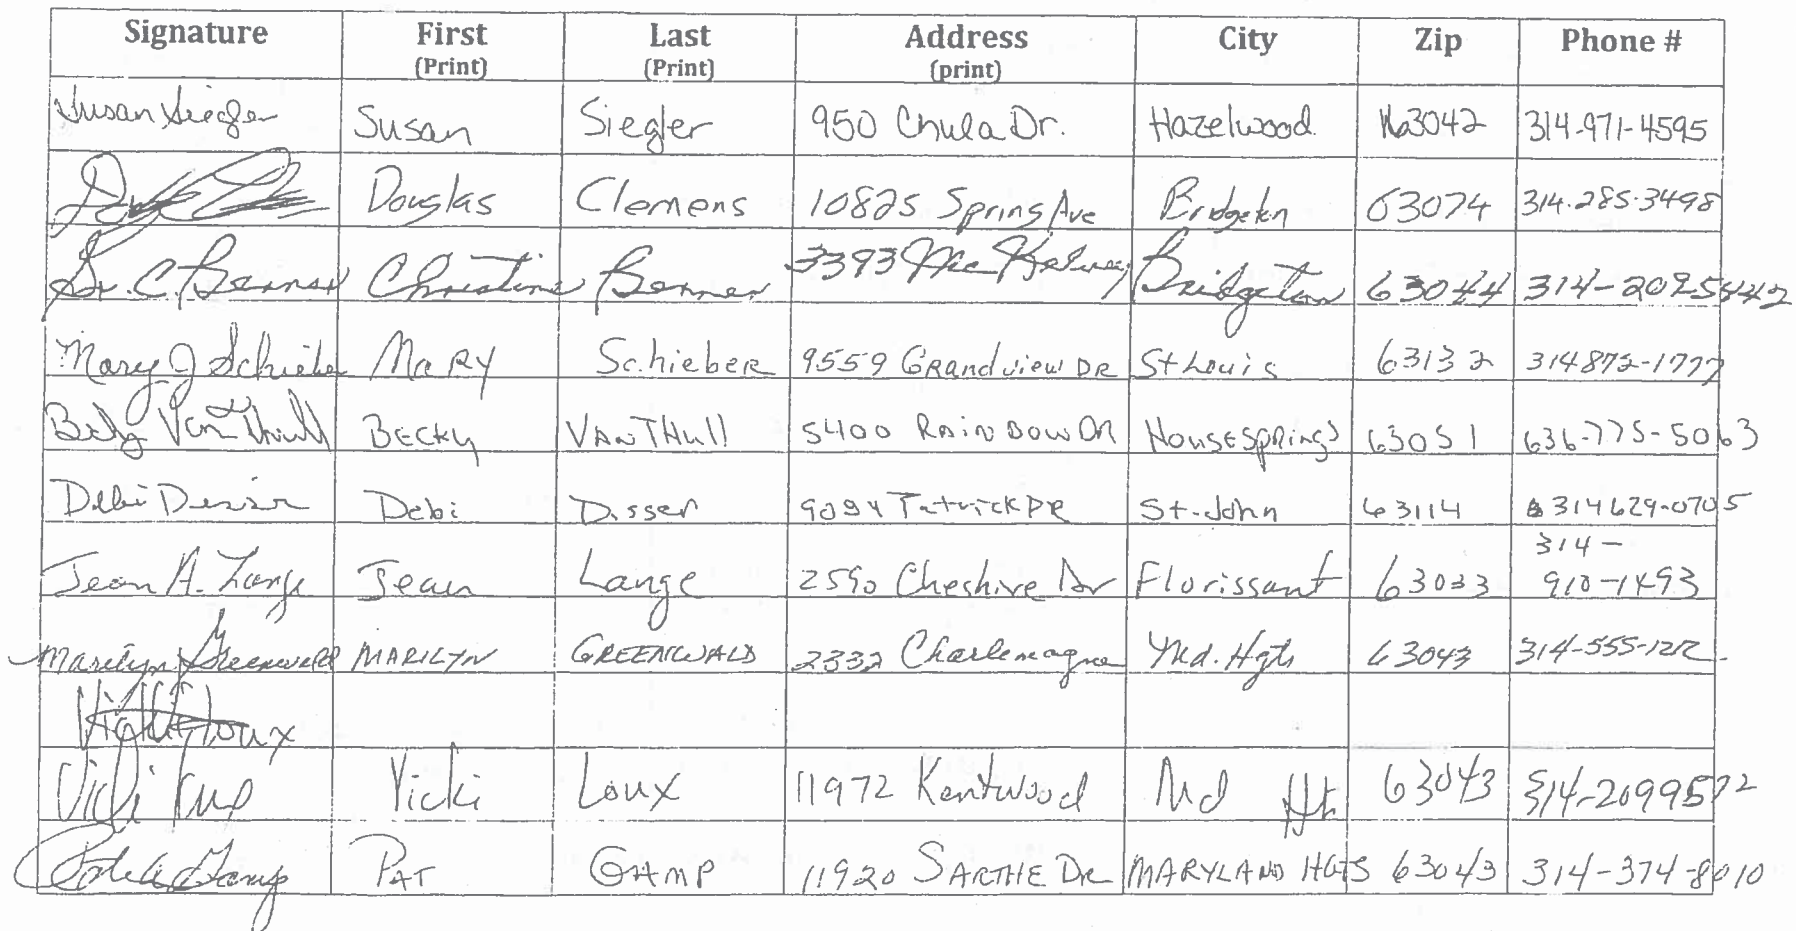 Signature First Last Address City Zip Phone #
(Print) (Print) (print)
Susan Siegler Susan Siegler 950 Chula Dr. Hazelwood 63042 314-971-4595
Douglas Clemens 10825 Spring Ave Bridgeton 63074 314-285-3498
Christine 3393 McKelvey Bridgeton 63044 314-209-5442
Mary J Schieber MARY Schieber 9559 Grandview DR St Louis 63132 314872-1777
Becky VanThull BECKY VANTHUll 5400 RAINBOW DR HOUSESPRINGS 63051 636-775-5063
Debi Disser Debi Disser 9094 Patrick DR St. John 63114 314629-0705
314-
Jean A. Lange Jean Lange 2590 Cheshire Dr Florissant 63033 910-1493
Marilyn Greenwald MARILYN GREENWALD 2332 Charlemagne Md. Hgts 63043 314-555-1212
Vicki Loux
Vicki Vicki Loux 11972 Kentwood Md Ht 63043 314-2099572
PAT GAMP 11920 SARTHE DR MARYLAND HGTS 63043 314-374-8010